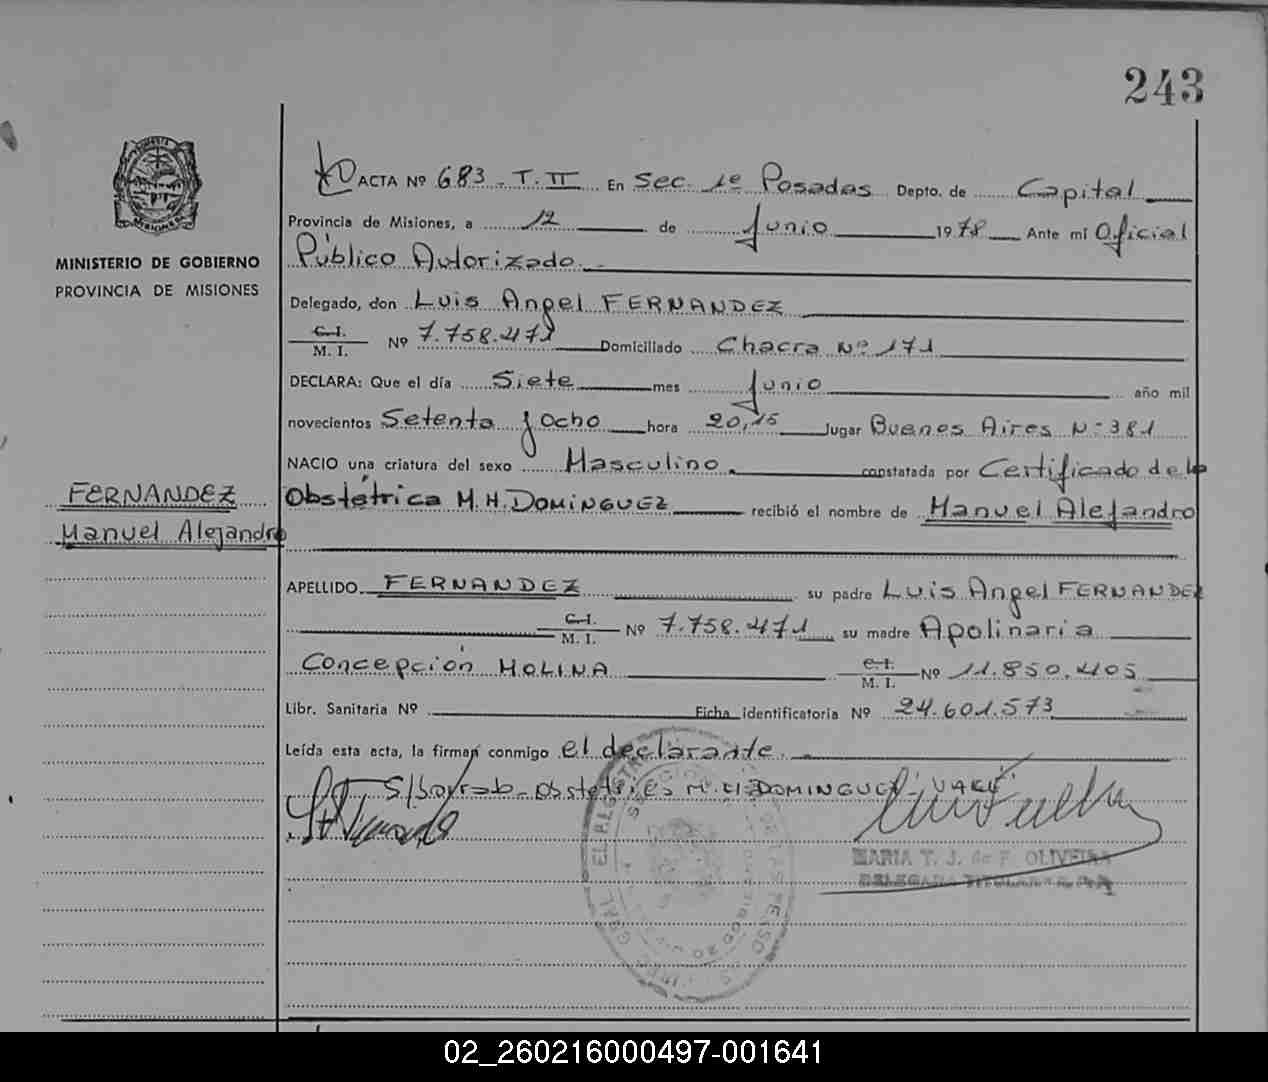 243
ACTA Nº 683 - T. II En Sec. 1º Posadas Depto. de Capital
Provincia de Misiones, a 12 de Junio 1978 Ante mi Oficial
Público Autorizado
MINISTERIO DE GOBIERNO
PROVINCIA DE MISIONES
Delegado, don Luis Angel FERNANDEZ
C.I. M. I. Nº 7.758.471 Domiciliado Chacra Nº 171
DECLARA: Que el día Siete mes Junio año mil
novecientos Setenta y ocho hora 20,15 lugar Buenos Aires N: 381
NACIO una criatura del sexo Masculino constatada por Certificado de la
FERNANDEZ
Manuel Alejandro
Obstétrica M.H. DOMINGUEZ recibió el nombre de Manuel Alejandro
APELLIDO FERNANDEZ su padre Luis Angel FERNANDEZ
C.I. M. I. Nº 7.758.471 su madre Apolinaria
Concepción MOLINA C.I. M. I. Nº 11.850.405
Libr. Sanitaria Nº Ficha identificatoria Nº 24.601.573
Leída esta acta, la firman conmigo el declarante.
S/borrab-obstetrica M.H. DOMINGUEZ: VALE
MARIA T. J. de F. OLIVEIRA
DELEGADA TITULAR
02_260216000497-001641